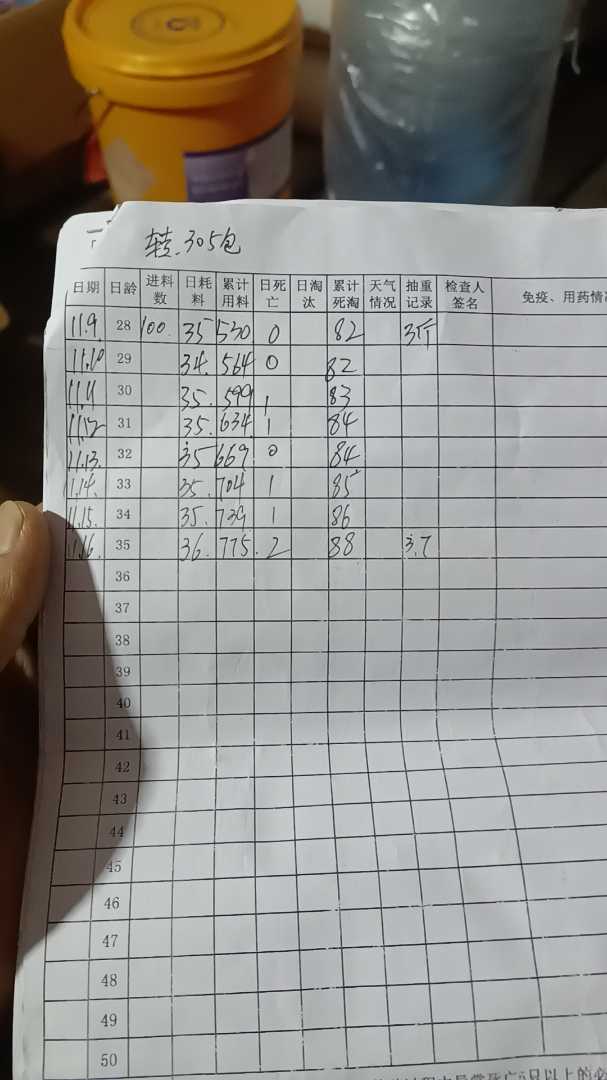 转.305包
日期 日龄 进料数 日耗料 累计用料 日死亡 日淘汰 累计死淘 天气情况 抽重记录 检查人签名 免疫、用药情况
11.9. 28 100. 35 530 0 82 3斤
11.10 29 34. 564 0 82
11.11 30 35. 599 1 83
11.12 31 35. 634. 1 84
11.13. 32 35 669. 0 84
11.14. 33 35. 704 1 85
11.15. 34 35. 739 1 86
11.16. 35 36. 775. 2 88 3.7
36
37
38
39
40
41
42
43
44
45
46
47
48
49
50
异常死亡5只以上的必